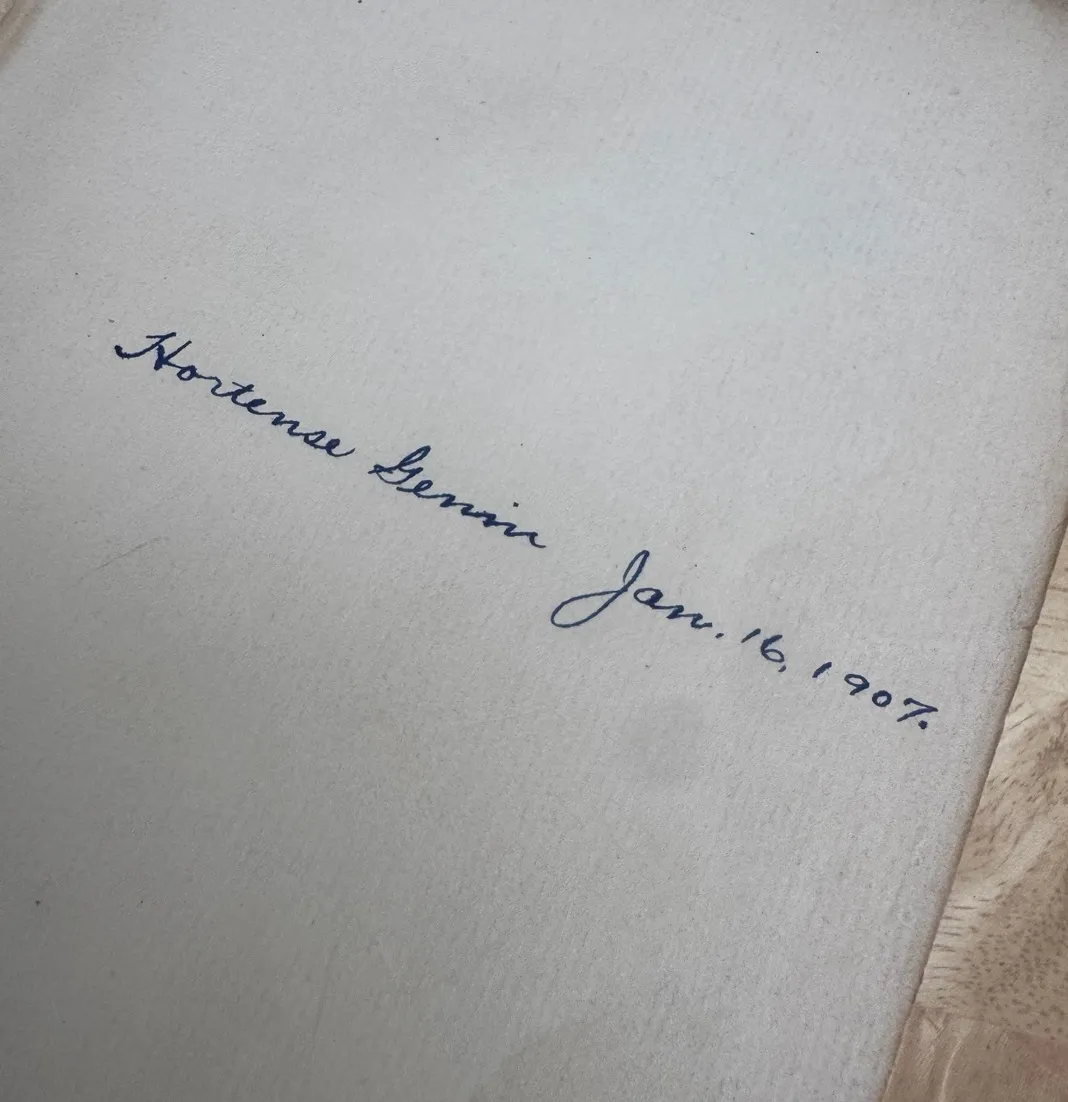 Hortense Genin Jan. 16, 1907.